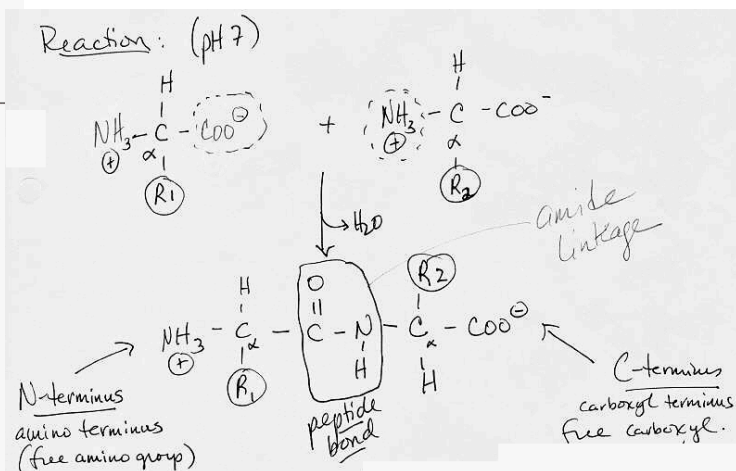 Reaction: (pH 7)
H H
NH3 - C - COO⊖ + NH3 - C - COO-
⊕ α ⊕ α
R1 R2
→ H2O
amide
linkage
O R2
H ||
NH3 - C - C - N - C - COO⊖
⊕ α α
R1 H H
N-terminus
amino terminus
(free amino group)
peptide
bond
C-terminus
carboxyl terminus
free carboxyl.